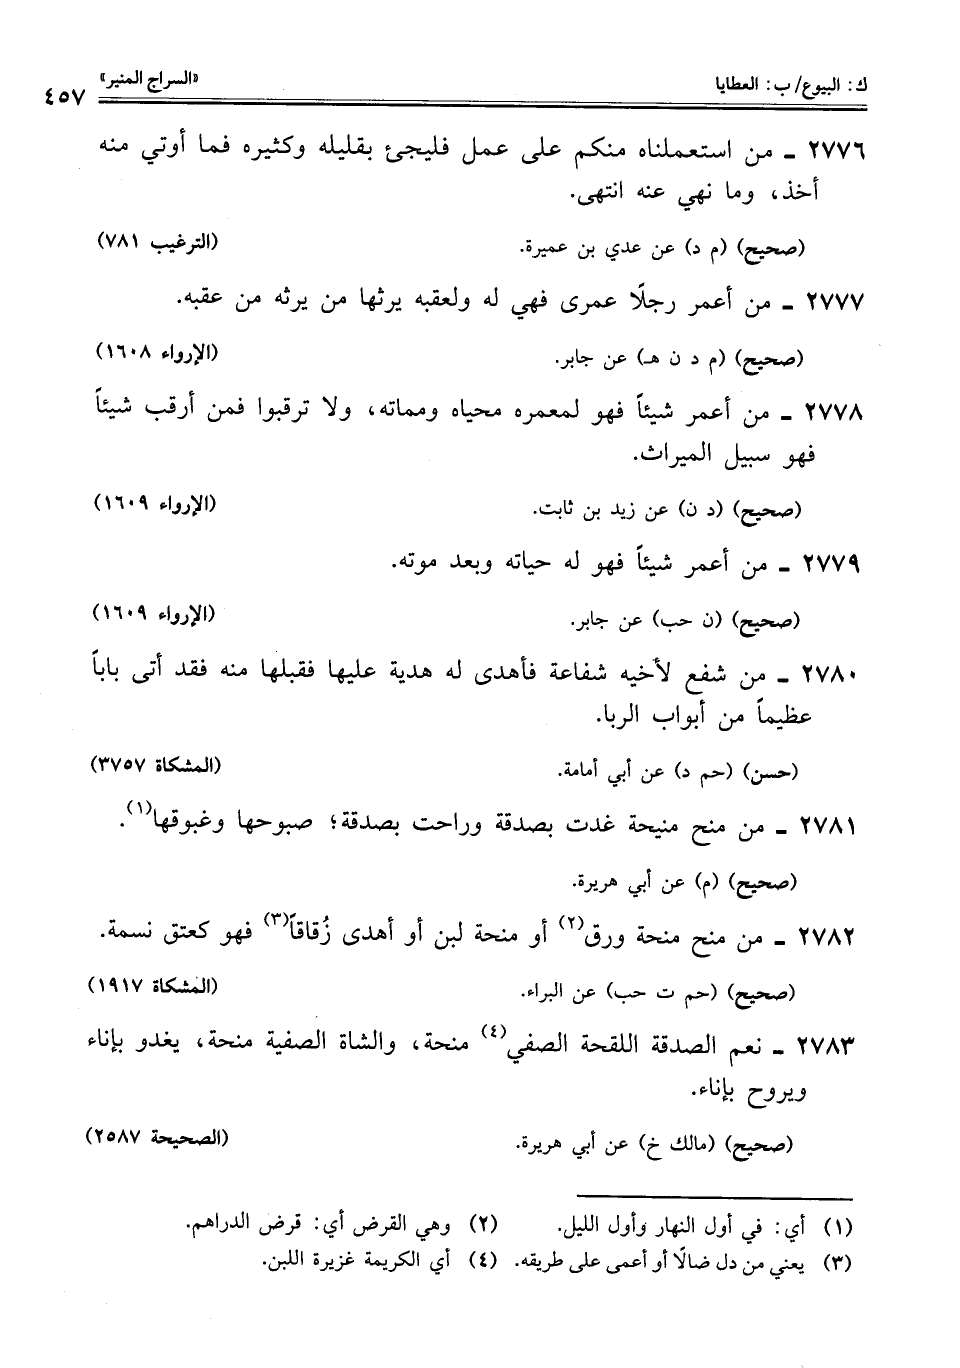 ك: البيوع/ ب: العطايا «السراج المنير» ٤٥٧
٢٧٧٦ ـ من استعملناه منكم على عمل فليجئ بقليله وكثيره فما أوتي منه
أخذ، وما نهي عنه انتهى.
(صحيح) (م د) عن عدي بن عميرة. (الترغيب ٧٨١)
٢٧٧٧ ـ من أعمر رجلًا عمرى فهي له ولعقبه يرثها من يرثه من عقبه.
(صحيح) (م د ن هـ) عن جابر. (الإرواء ١٦٠٨)
٢٧٧٨ ـ من أعمر شيئاً فهو لمعمره محياه ومماته، ولا ترقبوا فمن أرقب شيئاً
فهو سبيل الميراث.
(صحيح) (د ن) عن زيد بن ثابت. (الإرواء ١٦٠٩)
٢٧٧٩ ـ من أعمر شيئاً فهو له حياته وبعد موته.
(صحيح) (ن حب) عن جابر. (الإرواء ١٦٠٩)
٢٧٨٠ ـ من شفع لأخيه شفاعة فأهدى له هدية عليها فقبلها منه فقد أتى باباً
عظيماً من أبواب الربا.
(حسن) (حم د) عن أبي أمامة. (المشكاة ٣٧٥٧)
٢٧٨١ ـ من منح منيحة غدت بصدقة وراحت بصدقة؛ صبوحها وغبوقها(١).
(صحيح) (م) عن أبي هريرة.
٢٧٨٢ ـ من منح منحة ورق(٢) أو منحة لبن أو أهدى زُقاقاً(٣) فهو كعتق نسمة.
(صحيح) (حم ت حب) عن البراء. (المشكاة ١٩١٧)
٢٧٨٣ ـ نعم الصدقة اللقحة الصفي(٤) منحة، والشاة الصفية منحة، يغدو بإناء
ويروح بإناء.
(صحيح) (مالك خ) عن أبي هريرة. (الصحيحة ٢٥٨٧)
(١) أي: في أول النهار وأول الليل. (٢) وهي القرض أي: قرض الدراهم.
(٣) يعني من دل ضالًا أو أعمى على طريقه. (٤) أي الكريمة غزيرة اللبن.